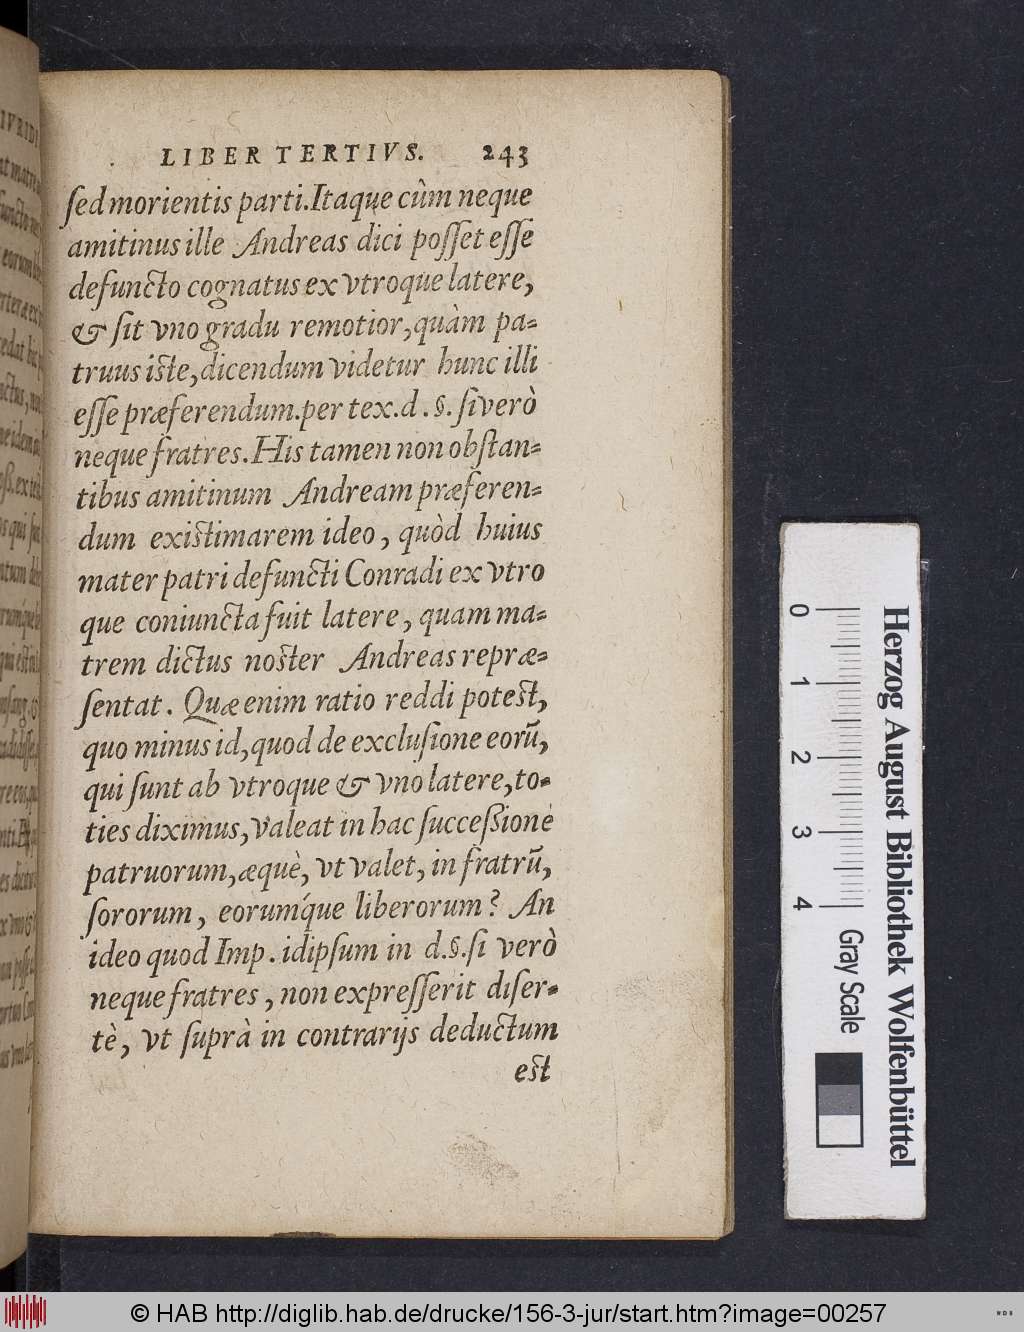 LIBER TERTIVS. 243
ſed morientis parti. Itaque cùm neque
amitinus ille Andreas dici poſſet eſſe
defuncto cognatus ex vtroque latere,
& ſit vno gradu remotior, quàm pa-
truus iſte, dicendum videtur hunc illi
eſſe præferendum. per tex. d. §. ſi verò
neque fratres. His tamen non obſtan-
tibus amitinum Andream præferen-
dum exiſtimarem ideo, quòd huius
mater patri defuncti Conradi ex vtro
que coniuncta fuit latere, quam ma-
trem dictus noſter Andreas repræ-
ſentat. Quæ enim ratio reddi poteſt,
quo minus id, quod de excluſione eorū,
qui ſunt ab vtroque & vno latere, to-
ties diximus, valeat in hac ſucceßione
patruorum, æquè, vt valet, in fratrū,
ſororum, eorumq́ue liberorum? An
ideo quod Imp. idipſum in d. §. ſi verò
neque fratres, non expreſſerit diſer-
tè, vt ſuprà in contrarijs deductum
eſt
0 1 2 3 4
Herzog August Bibliothek Wolfenbüttel
Gray Scale
© HAB http://diglib.hab.de/drucke/156-3-jur/start.htm?image=00257